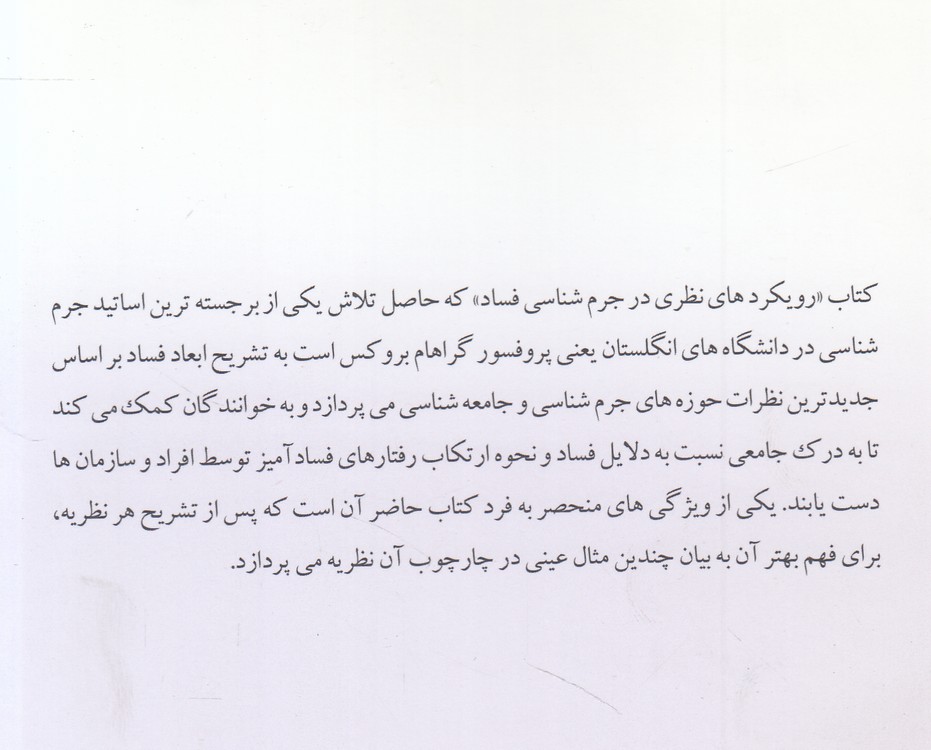 کتاب «رویکرد های نظری در جرم شناسی فساد» که حاصل تلاش یکی از برجسته ترین اساتید جرم
شناسی در دانشگاه های انگلستان یعنی پروفسور گراهام بروکس است به تشریح ابعاد فساد بر اساس
جدیدترین نظرات حوزه های جرم شناسی و جامعه شناسی می پردازد و به خوانندگان کمک می کند
تا به درک جامعی نسبت به دلایل فساد و نحوه ارتکاب رفتارهای فسادآمیز توسط افراد و سازمان ها
دست یابند. یکی از ویژگی های منحصر به فرد کتاب حاضر آن است که پس از تشریح هر نظریه،
برای فهم بهتر آن به بیان چندین مثال عینی در چارچوب آن نظریه می پردازد.